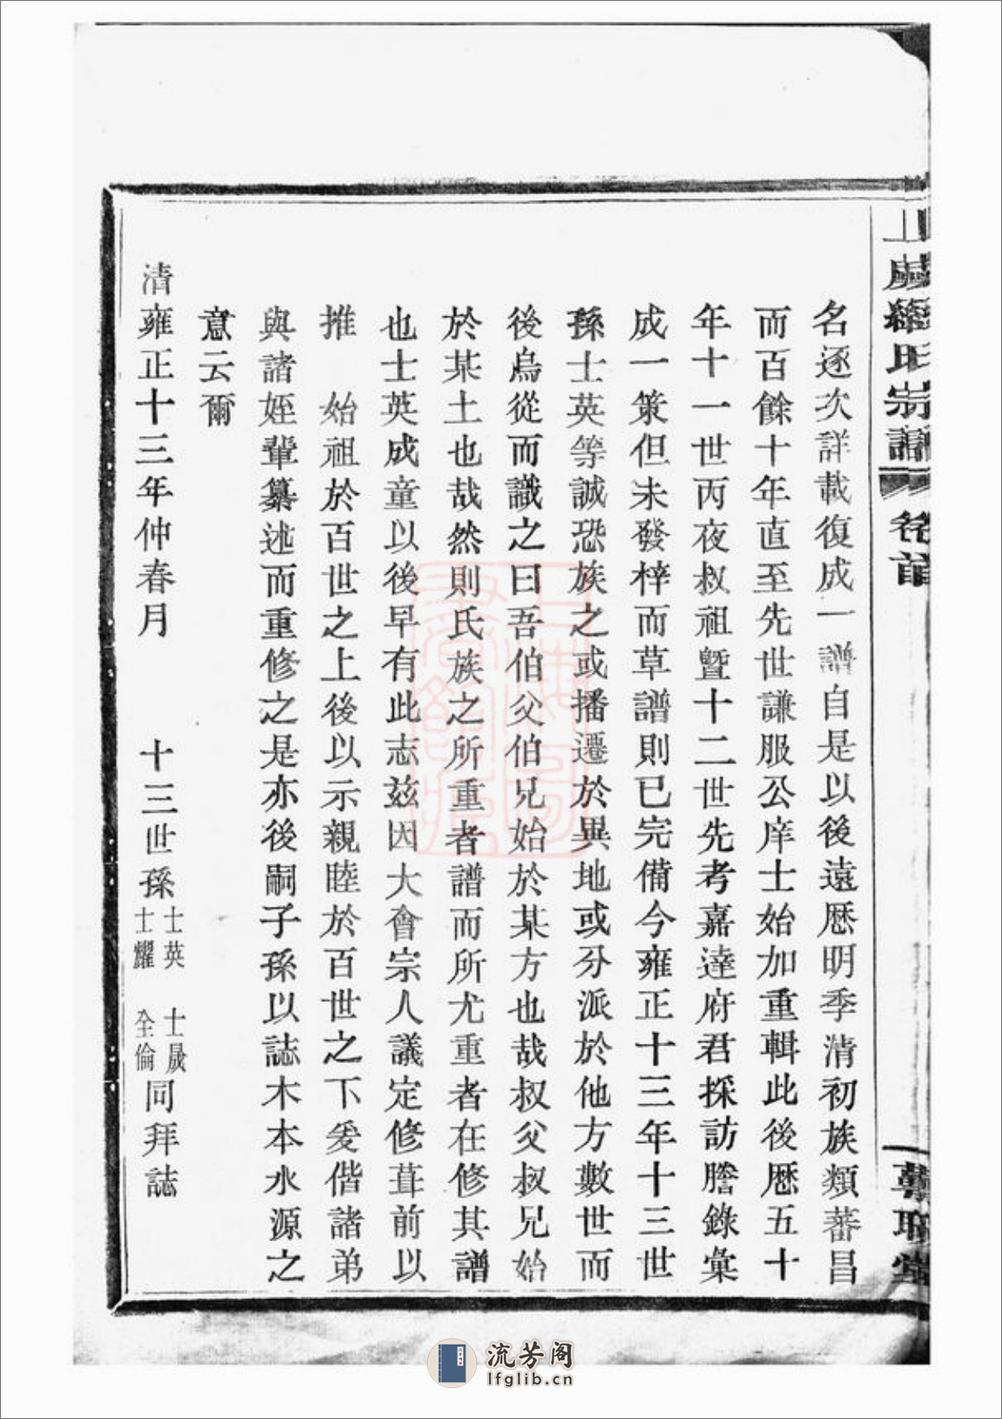 氏宗譜 卷首
名逐次詳載復成一譜自是以後遠歷明季清初族類蕃昌
而百餘十年直至先世謙服公庠士始加重輯此後歷五十
年十一世丙夜叔祖暨十二世先考嘉達府君採訪謄錄彙
成一策但未發梓而草譜則已完備今雍正十三年十三世
孫士英等誠恐族之或播遷於異地或分派於他方數世而
後烏從而識之曰吾伯父伯兄始於某方也哉叔父叔兄始
於某土也哉然則氏族之所重者譜而所尤重者在修其譜
也士英成童以後早有此志茲因大會宗人議定修葺前以
推 始祖於百世之上後以示親睦於百世之下爰偕諸弟
與諸姪輩纂述而重修之是亦後嗣子孫以誌木本水源之
意云爾
清雍正十三年仲春月 十三世孫士英 士晟 士耀 全倫同拜誌
流芳阁
lfglib.cn